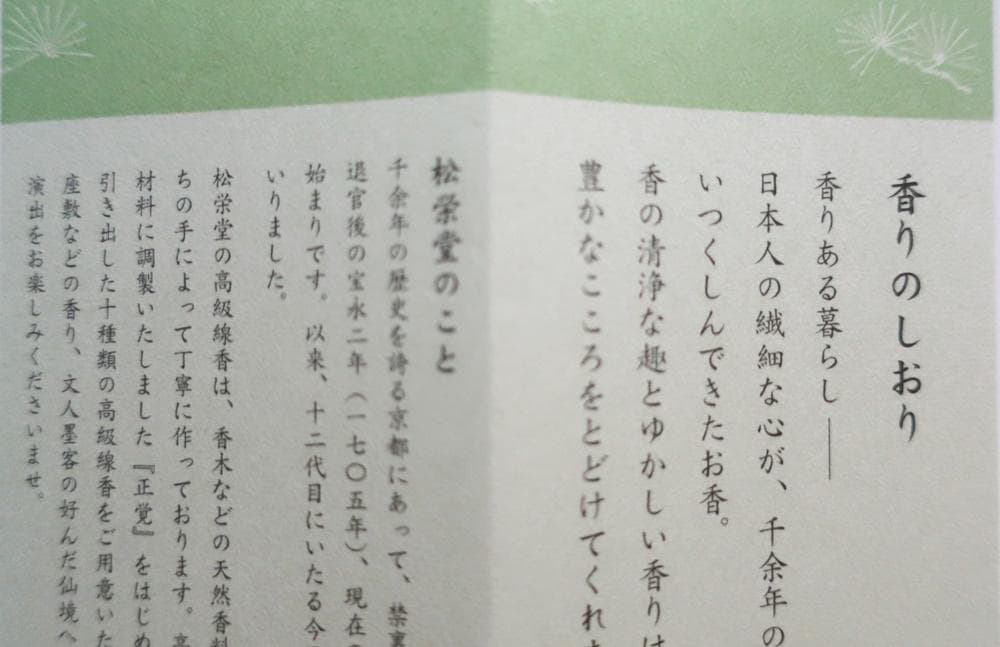 香りのしおり
香りある暮らし――
日本人の繊細な心が、千余年の
いつくしんできたお香。
香の清浄な趣とゆかしい香りは
豊かなこころをとどけてくれ
松栄堂のこと
千余年の歴史を誇る京都にあって、禁裏
退官後の宝永二年（一七〇五年）、現在
始まりです。以来、十二代目にいたる今
いりました。
松栄堂の高級線香は、香木などの天然香料
ちの手によって丁寧に作っております。高
材料に調製いたしました『正覚』をはじめ
引き出した十種類の高級線香をご用意いた
座敷などの香り、文人墨客の好んだ仙境へ
演出をお楽しみくださいませ。